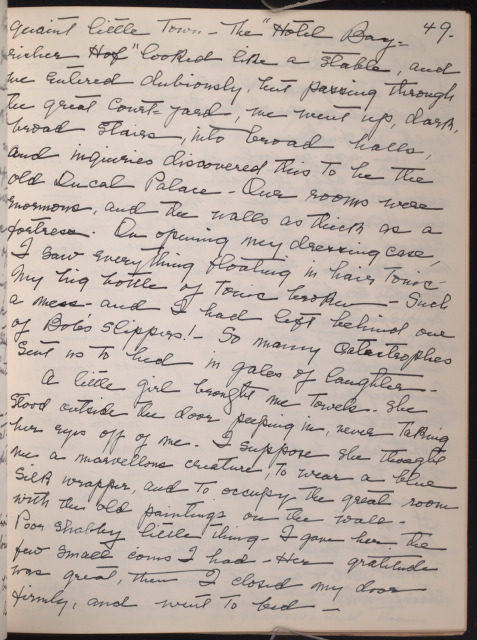 49.
quaint little Town - The "Hotel Bay-
risher Hof" looked like a stable, and
we entered dubiously, but passing through
the great Court-yard, we went up, dark,
broad stairs, into broad halls,
and inquiries discovered this to be the
old Ducal Palace - Our rooms were
enormous, and the walls as thick as a
fortress. On opening my dressing case,
I saw everything floating in hair Tonic -
My big bottle of Tonic broken - Such
a mess - and I had left behind one
of Bote's slippers! - So many catastrophies
sent us to bed in gales of laughter -
A little girl brought me Towels. She
stood outside the door peeping in, never Taking
her eyes off of me. I suppose she thought
me a marvellous creature, To wear a blue
silk wrapper, and To occupy the great room
with the old paintings on the walls -
Poor shabby little thing - I gave her the
few small coins I had - Her gratitude
was great, then I closed my door
firmly, and went To bed -